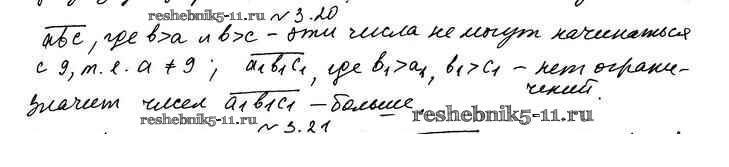 №3.20
reshebnik5-11.ru
abc, где b>a и b>c – эти числа не могут начинаться
с 9, т.е. a≠9; a₁b₁c₁, где b₁>a₁, b₁>c₁ – нет ограни-
чений.
Значит чисел a₁b₁c₁ – больше
reshebnik5-11.ru
reshebnik5-11.ru
№3.21